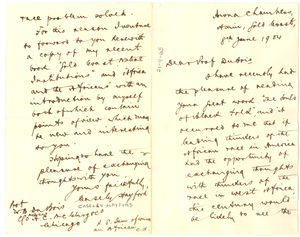 Arona Chambers,
Axim, Gold Coast,
8th June 1904
Dear Prof Du Bois
I have recently had
the pleasure of reading
your great work "The Souls
of Black Folk", and it
occurred to me that if
leading thinkers of the
African race in America
had the opportunity of
exchanging thoughts
with thinkers of the
race in West Africa
this century would
be likely to see the
race problem solved.
For this reason I venture
to forward to you herewith
a copy of my recent
book "Gold Coast Native
Institutions" and
with an
introduction by myself
both of which contain
points of view which may
be new and interesting
to you.
Hoping to have the
pleasure of exchanging
thoughts with you.
Yours faithfully,
Casely Hayford
CASELEY HAYFORD
Prof
Du Bois
c/o A.C. McClurg & Co
Chicago